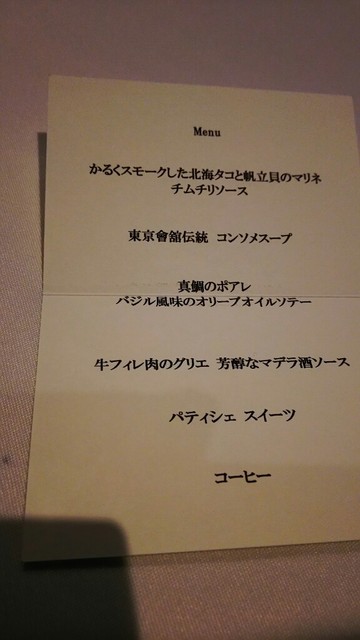 Menu
かるくスモークした北海タコと帆立貝のマリネ
チムチリソース
東京會舘伝統 コンソメスープ
真鯛のポアレ
バジル風味のオリーブオイルソテー
牛フィレ肉のグリエ 芳醇なマデラ酒ソース
パティシェ スイーツ
コーヒー